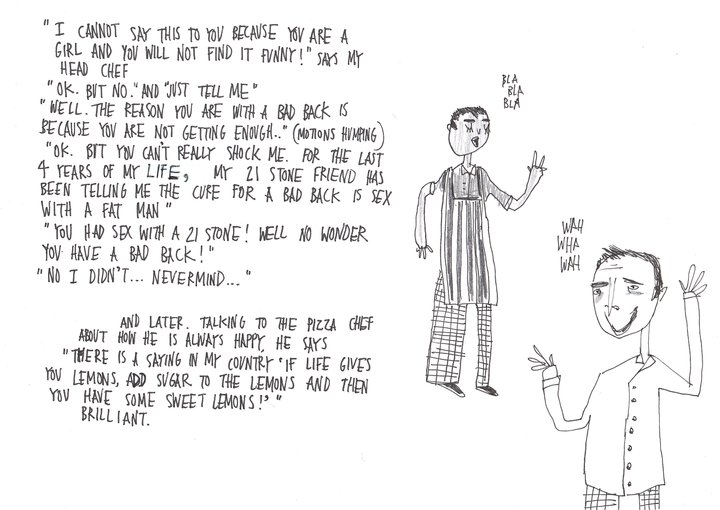 "I CANNOT SAY THIS TO YOU BECAUSE YOU ARE A
GIRL AND YOU WILL NOT FIND IT FUNNY!" SAYS MY
HEAD CHEF
"OK. BUT NO." AND "JUST TELL ME"
"WELL. THE REASON YOU ARE WITH A BAD BACK IS
BECAUSE YOU ARE NOT GETTING ENOUGH.." (MOTIONS HUMPING)
"OK. BTT YOU CAN'T REALLY SHOCK ME. FOR THE LAST
4 YEARS OF MY LIFE, MY 21 STONE FRIEND HAS
BEEN TELLING ME THE CURE FOR A BAD BACK IS SEX
WITH A FAT MAN"
"YOU HAD SEX WITH A 21 STONE! WELL NO WONDER
YOU HAVE A BAD BACK!"
"NO I DIDN'T... NEVERMIND..."
AND LATER. TALKING TO THE PIZZA CHEF
ABOUT HOW HE IS ALWAYS HAPPY, HE SAYS
"THERE IS A SAYING IN MY COUNTRY 'IF LIFE GIVES
YOU LEMONS, ADD SUGAR TO THE LEMONS AND THEN
YOU HAVE SOME SWEET LEMONS!' "
BRILLIANT.
BLA
BLA
BLA
WAH
WHA
WAH